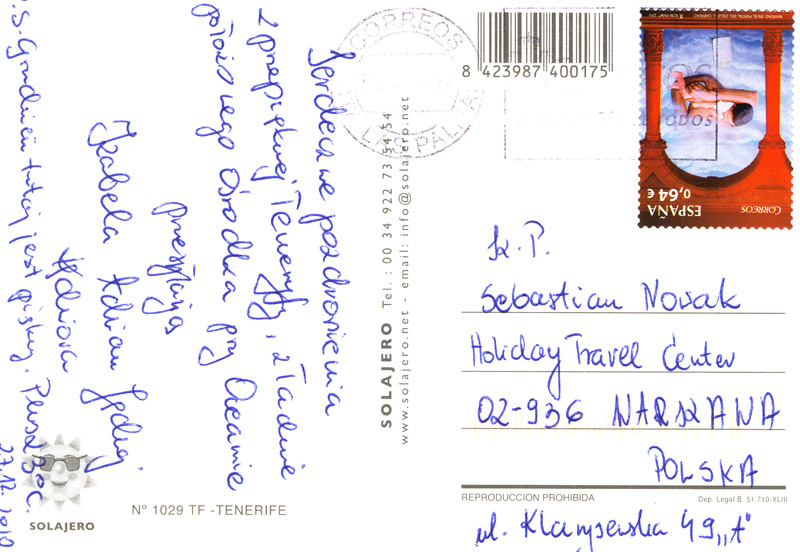 Serdeczne pozdrowienia
z przepięknej Teneryfy, z ładnie
położonego Ośrodka przy Oceanie
przesyłają
Izabela Adrian
Wiktoria
P.S. Grudzień tutaj jest piękny.
27.12.2010
SOLAJERO
Nº 1029 TF -TENERIFE
SOLAJERO Tel. : 00 34 922 73 54 54
www.solajero.net - email: info@solajero.net
CORREOS
LAS PALMA
8 423987 400175
CORREOS
ESPAÑA
0,64 €
TODOS
Sz. P.
Sebastian Nowak
Holiday Travel Center
02-936 WARSZAWA
POLSKA
REPRODUCCION PROHIBIDA
Dep. Legal B. 51.710-XLIII
ul. 49 „A"